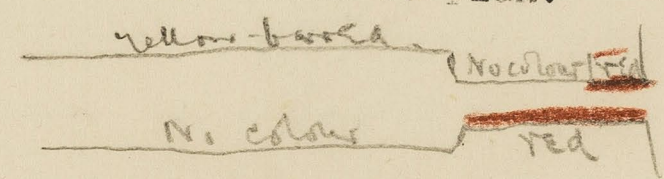 yellow-banded
No colour red
No colour red